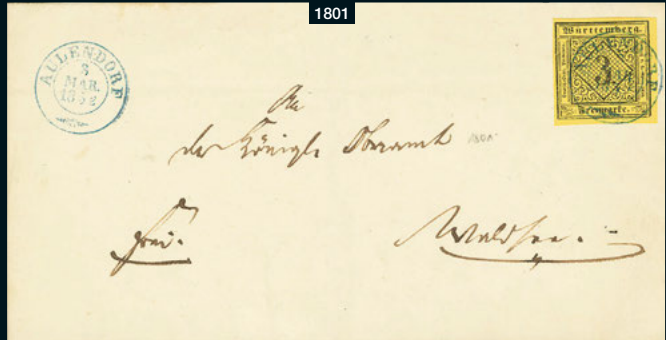 1801
AULENDORF
8
MÄR.
1852
Württemberg.
3
Freimarke.
AULENDORF
An
das Königl. Oberamt
frei.
Waldsee.